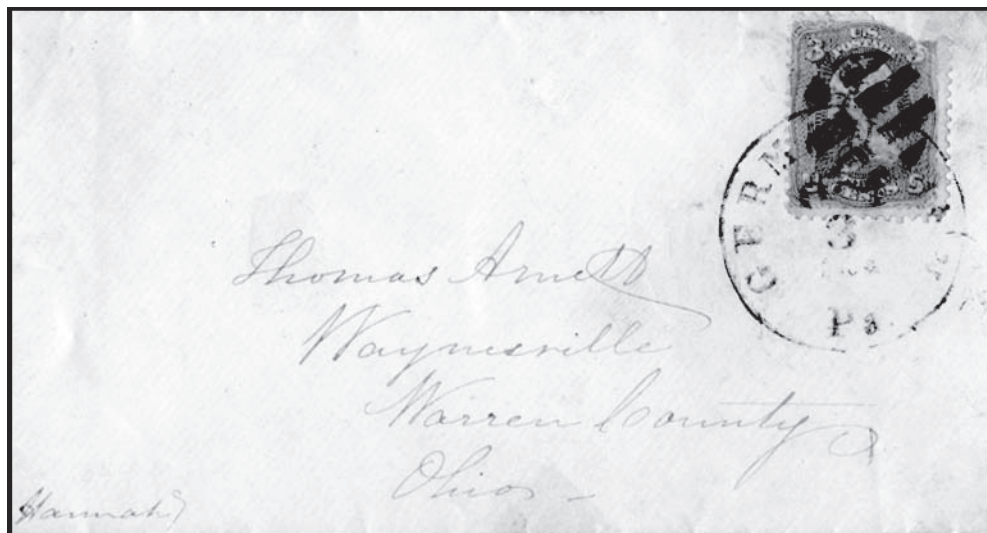 3 U.S. 3
POSTAGE
CENTS
GERM
3
Pa
Thomas Arnett
Waynesville
Warren County
Ohio
Hannah